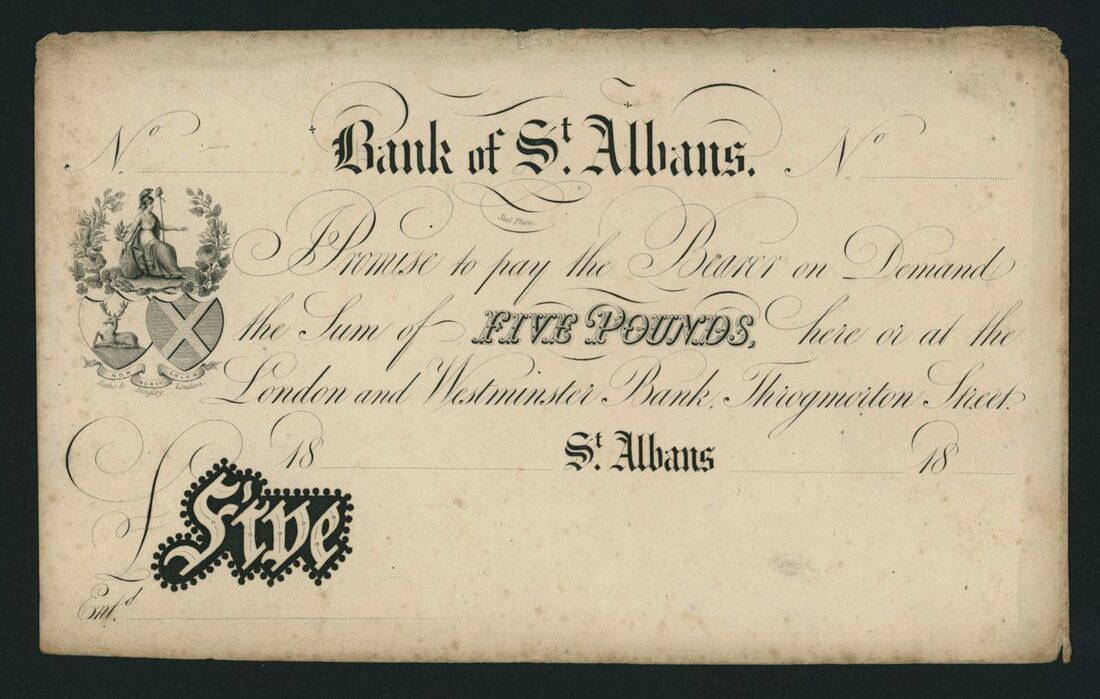 No
Bank of St. Albans.
No
Steel Plate.
I Promise to pay the Bearer on Demand
the Sum of FIVE POUNDS, here or at the
London and Westminster Bank, Throgmorton Street.
NON NOBIS SOLUM
London.
18 St. Albans 18
£ Five
Entd.